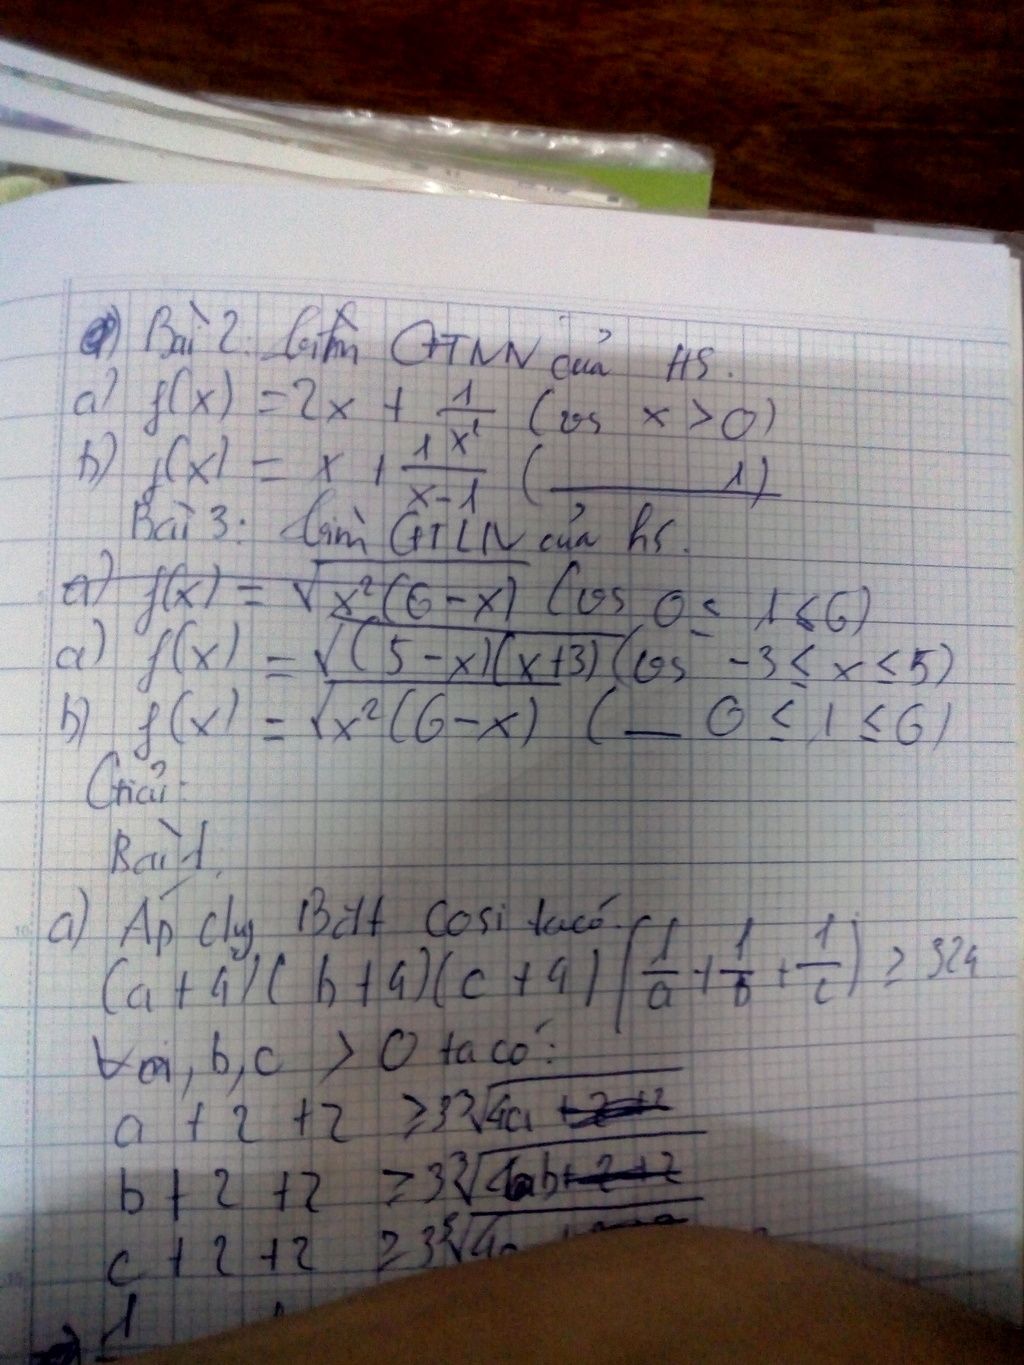 Bài 2: Tìm GTNN của HS.
a) f(x) = 2x + 1/x² (với x > 0)
b) f(x) = x + 1/(x-1) (____ 1)
Bài 3: Tìm GTLN của hs.
a) f(x) = √(x²(6-x)) (với 0 ≤ 1 ≤ 6)
a) f(x) = √((5-x)(x+3)) (với -3 ≤ x ≤ 5)
b) f(x) = √(x²(6-x)) (__ 0 ≤ 1 ≤ 6)
Giải:
Bài 1.
a) Áp dụg Bđt Cosi ta có
(a+4)(b+4)(c+4)(1/a + 1/b + 1/c) ≥ 324
∀a, b, c > 0 ta có:
a + 2 + 2 ≥ 3∛(4a)
b + 2 + 2 ≥ 3∛(4b)
c + 2 + 2 ≥ 3∛